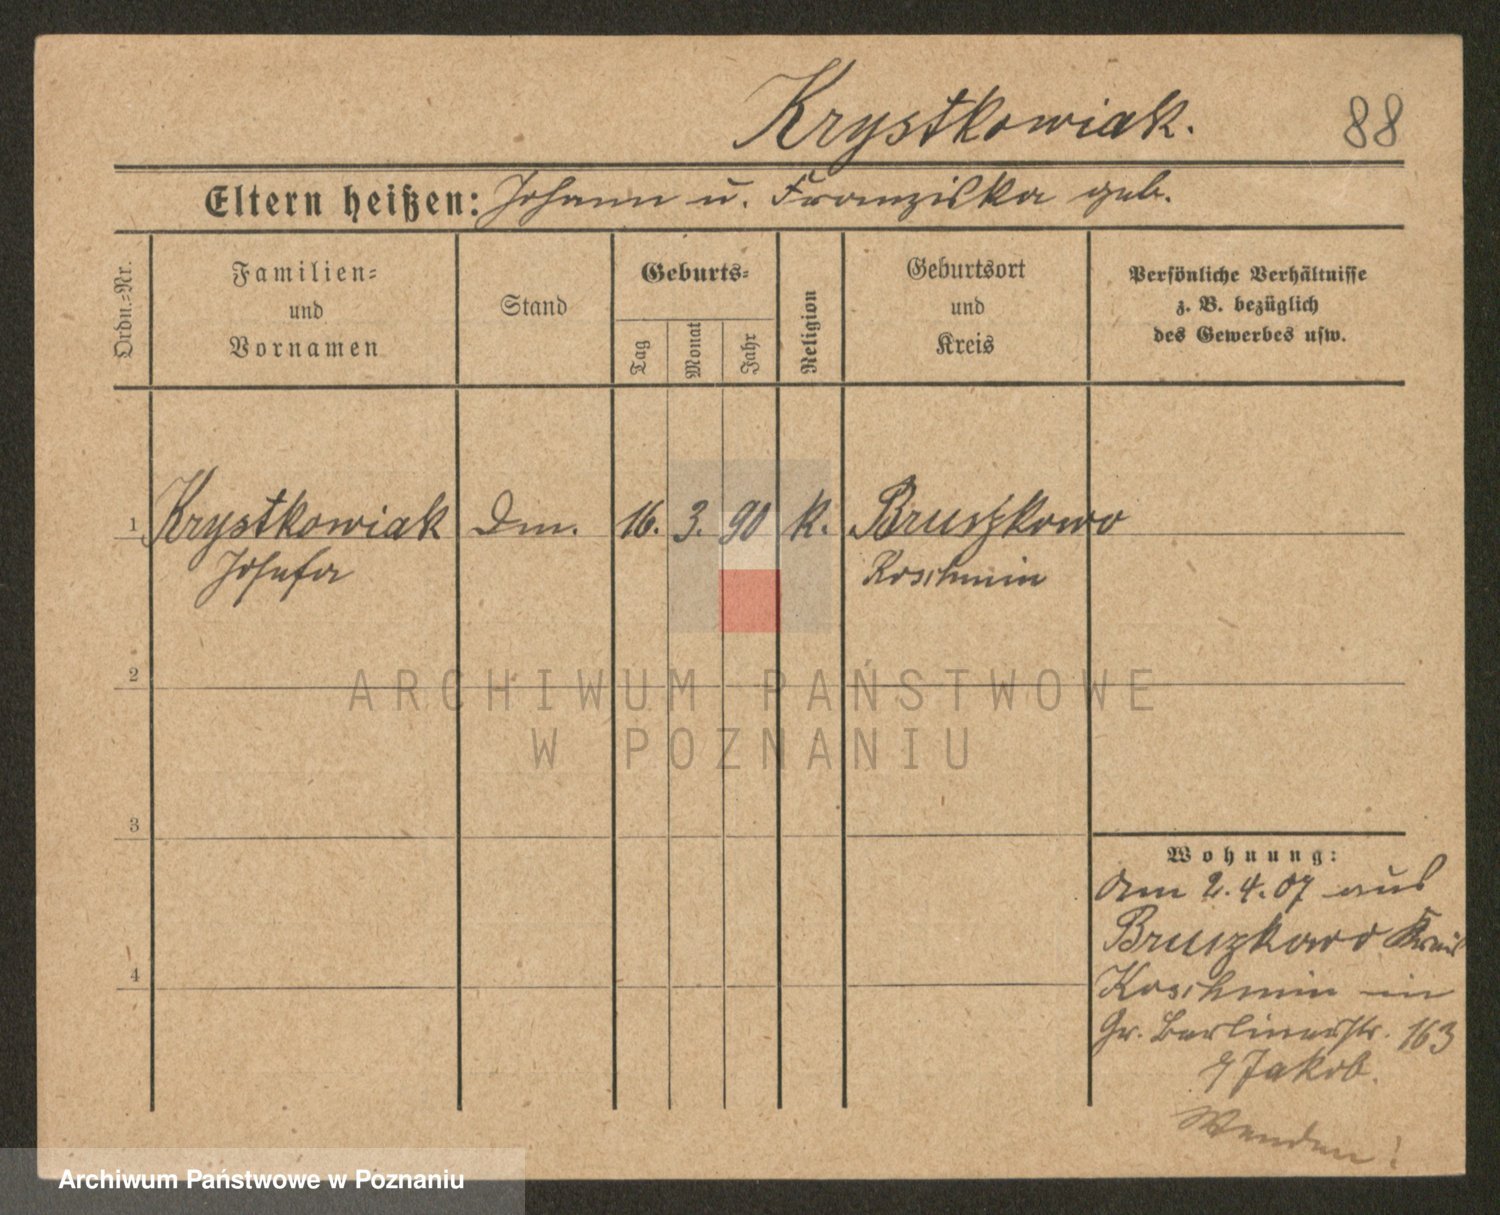 Krystkowiak. 88
Eltern heißen: Johann u. Franziska geb.
Ordn.-Nr.
Familien-
und
Vornamen
Stand
Geburts-
Tag
Monat
Jahr
Religion
Geburtsort
und
Kreis
Persönliche Verhältnisse
z. B. bezüglich
des Gewerbes usw.
1 Krystkowiak Dm. 16. 3. 90 k. Bruszkowo
Josefa Koschmin
2
3
4
Wohnung:
Am 2.4.07 aus
Bruszkowo Kreis
Koschmin in
Gr. Berlinerstr. 163
Jakob.
Wenden!
ARCHIWUM PAŃSTWOWE
W POZNANIU
Archiwum Państwowe w Poznaniu